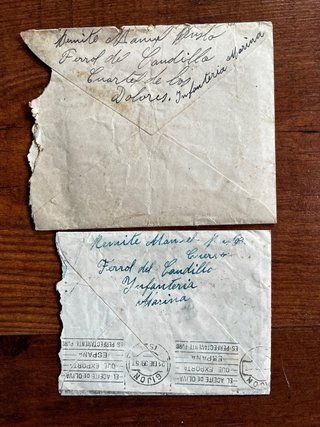 Remite Manuel
Ferrol del Caudillo
Cuartel de los
Dolores. Infanteria Marina
Remite Manuel
Ferrol del Caudillo
Infanteria
Marina
EL ACEITE DE OLIVA
QUE EXPORTA
ESPAÑA
ES PERFECTAMENTE PURO
GIJON
EL ACEITE DE OLIVA
QUE EXPORTA
ESPAÑA
ES PERFECTAMENTE PURO